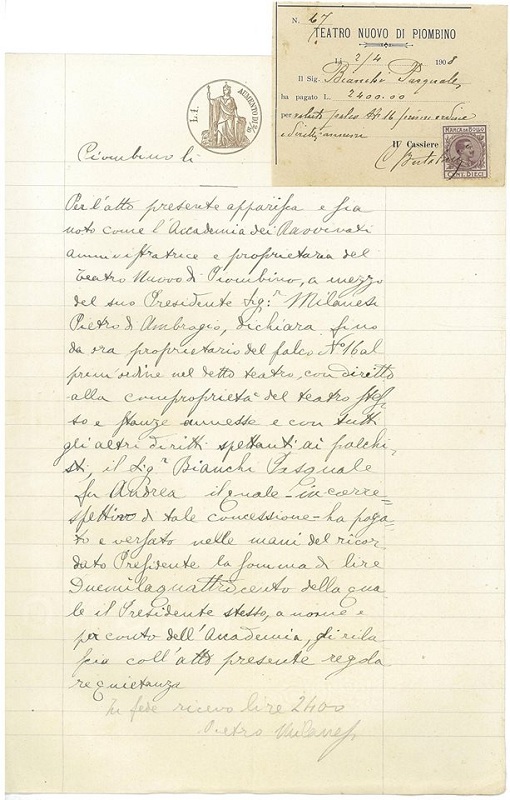 N. 67
TEATRO NUOVO DI PIOMBINO
Lì 2/4 1908
Il Sig. Bianchi Pasquale
ha pagato L. 2400.00
per saldo palco N. 16 prim'ordine
e diritti annessi
Il Cassiere
MARCA DA BOLLO
CENT. DIECI
L. 1.
AUMENTO DI 2/10
Piombino li
Per l'atto presente apparisca e sia
noto come l'Accademia dei Ravvivati
amministratrice e proprietaria del
Teatro Nuovo di Piombino, a mezzo
del suo Presidente Sig.r Milanesi
Pietro di Ambrogio, dichiara fino
da ora proprietario del palco No 16 al
prim'ordine nel detto teatro, con diritto
alla comproprietà del teatro stes-
so e stanze annesse e con tutti
gli altri diritti spettanti ai palchi,
sti, il Sig.r Bianchi Pasquale
fu Andrea il quale - in corre-
spettivo di tale concessione - ha paga-
to e versato nelle mani del ricor-
dato Presidente la somma di lire
Duemilaquattrocento della qua-
le il Presidente stesso, a nome e
per conto dell'Accademia, gli rila-
scia coll'atto presente regolare
quietanza
In fede ricevo lire 2400
Pietro Milanesi